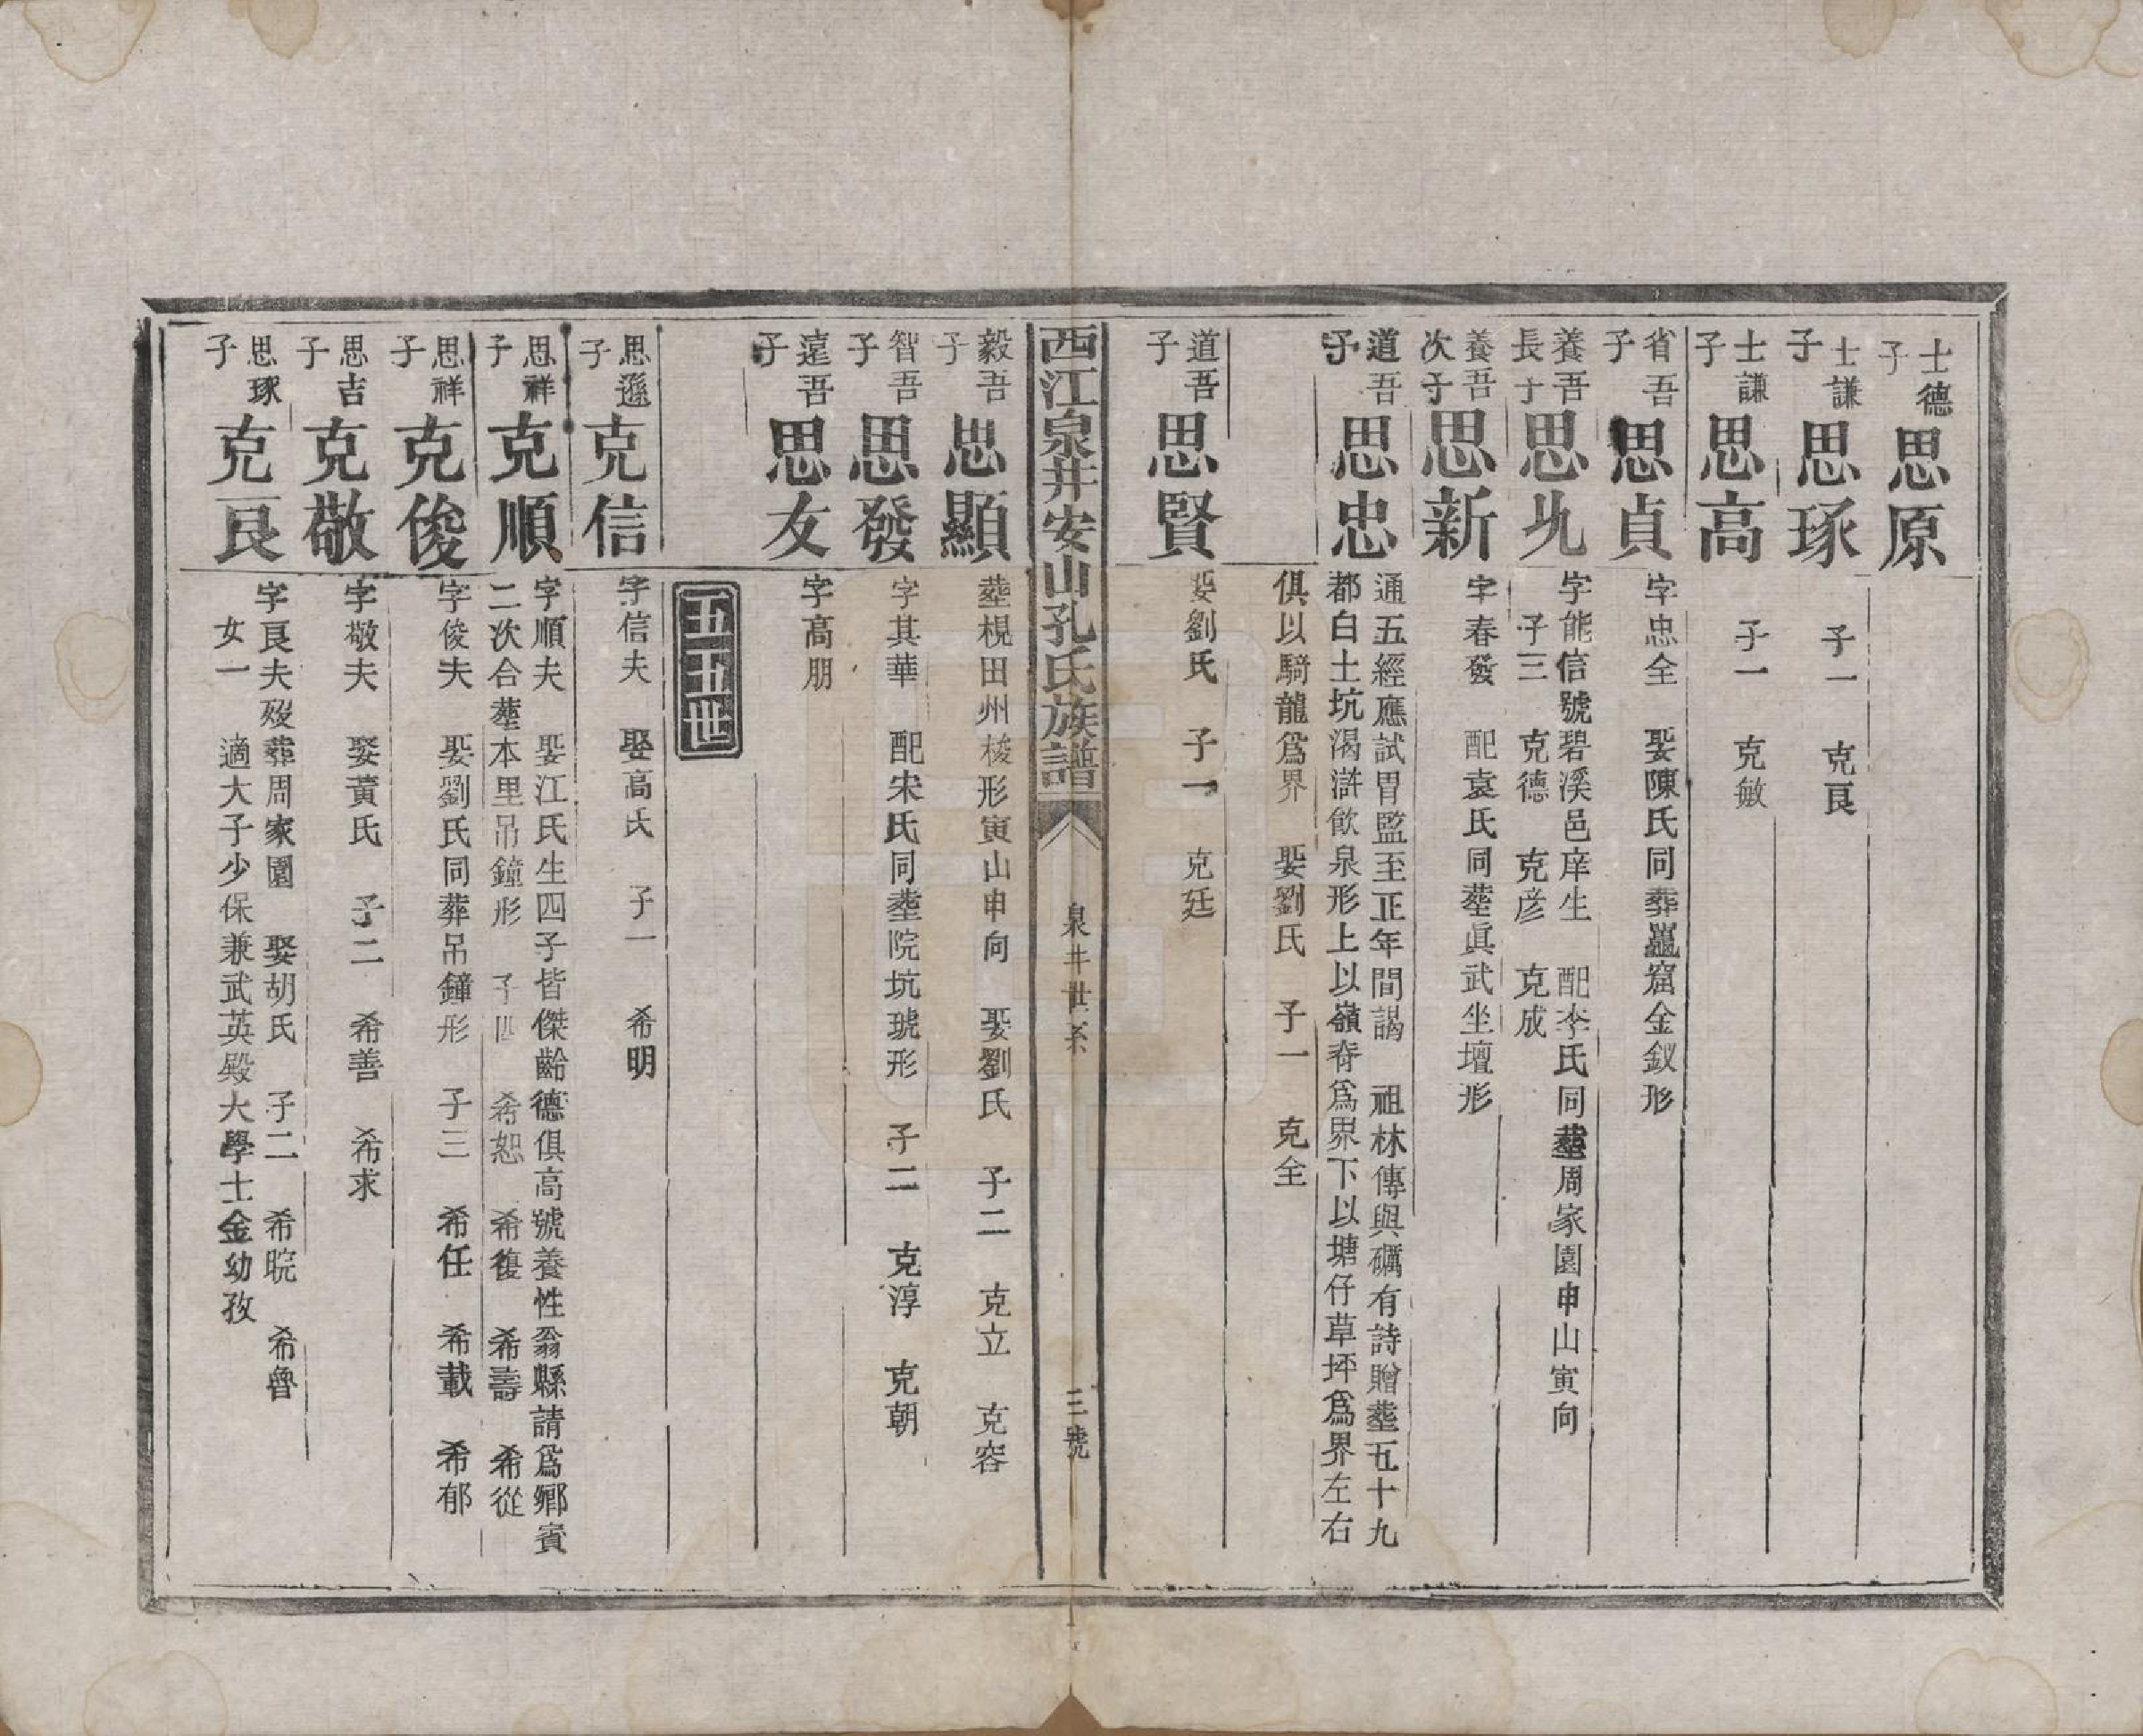 士德子
思原
士謙子
思琢
子一　克良
士謙子
思高
子一　克敏
省吾子
思貞
字忠全　娶陳氏同葬鼌窟金釵形
養吾長子
思九
字能信號碧溪邑庠生　配李氏同塟周家園申山寅向
子三　克德　克彦　克成
養吾次子
思新
字春發　配袁氏同塟眞武坐壇形
道吾子
思忠
通五經應試胄監至正年間謁　祖林傳與礪有詩贈塟五十九
都白土坑渴滸飲泉形上以嶺脊爲界下以塘仔草坪爲界左右
俱以騎龍爲界　娶劉氏　子一　克全
道吾子
思賢
娶劉氏　子一　克廷
西江泉井安山孔氏族譜
泉井世系
三號
毅吾子
思顯
塟梘田州梭形寅山申向　娶劉氏　子二　克立　克容
智吾子
思發
字其華　配宋氏同塟院坑琥形　子二　克淳　克朝
遠吾子
思友
字高朋
五五世
思遜子
克信
字信夫　娶高氏　子一　希明
思祥子
克順
字順夫　娶江氏生四子皆傑齡德俱高號養性翁縣請爲鄉賓
二次合塟本里吊鐘形　子四　希恕　希復　希壽　希從
思祥子
克俊
字俊夫　娶劉氏同葬吊鐘形　子三　希任　希載　希郁
思吉子
克敬
字敬夫　娶黃氏　子二　希善　希求
思琢子
克良
字良夫歿葬周家園　娶胡氏　子二　希晥　希魯
女一　適大子少保兼武英殿大學士金幼孜